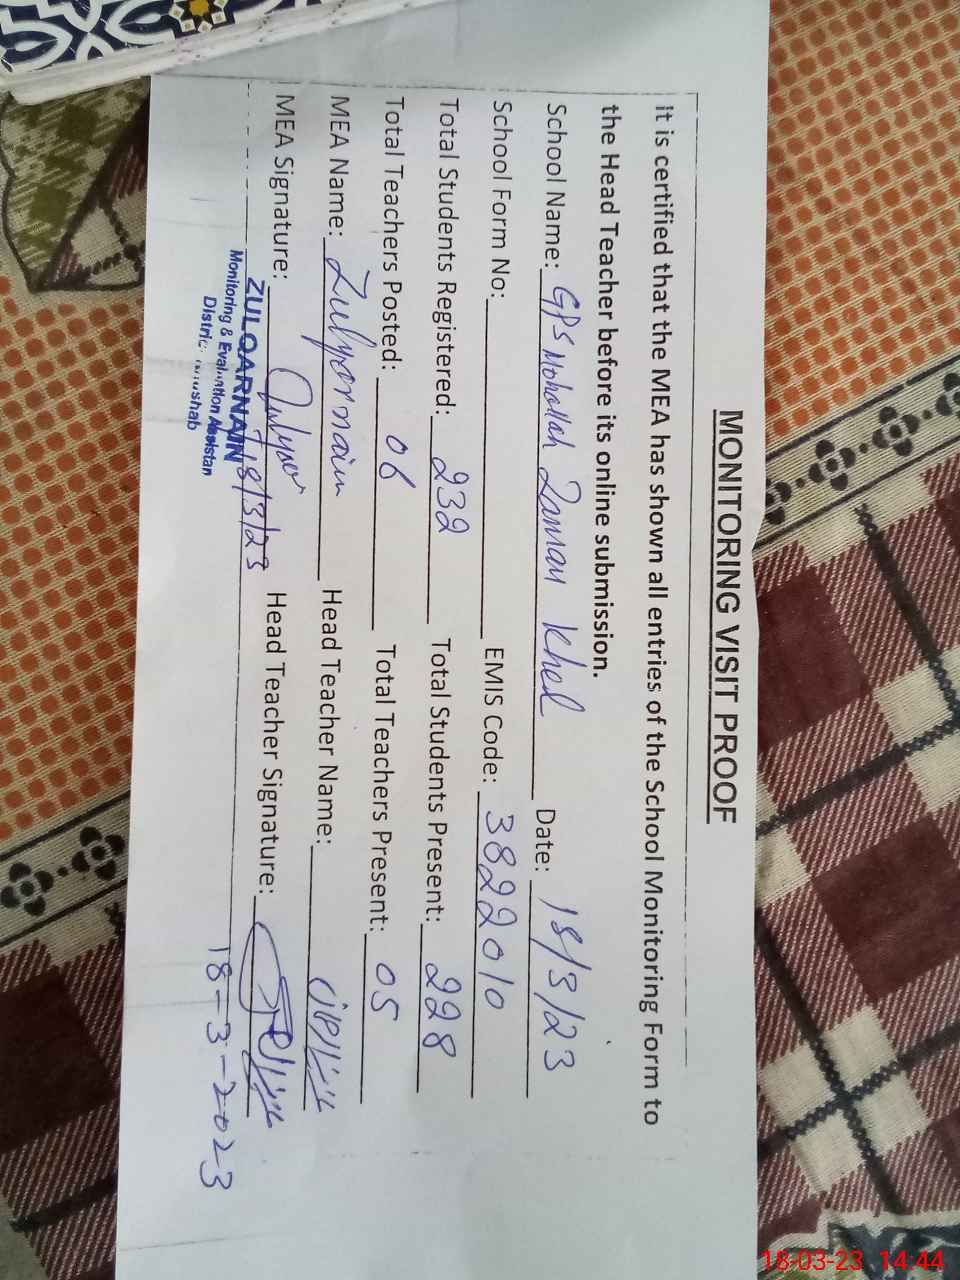 MONITORING VISIT PROOF
It is certified that the MEA has shown all entries of the School Monitoring Form to
the Head Teacher before its online submission.
School Name: GPS Mohallah Zaman Khel Date: 18/3/23
School Form No: EMIS Code: 3822010
Total Students Registered: 232 Total Students Present: 228
Total Teachers Posted: 06 Total Teachers Present: 05
MEA Name: Zulqarnain Head Teacher Name:
MEA Signature: 18/3/23 Head Teacher Signature:
18-3-2023
ZULQARNAIN
Monitoring & Evaluation Assistan
District Khushab
18-03-23 14:44